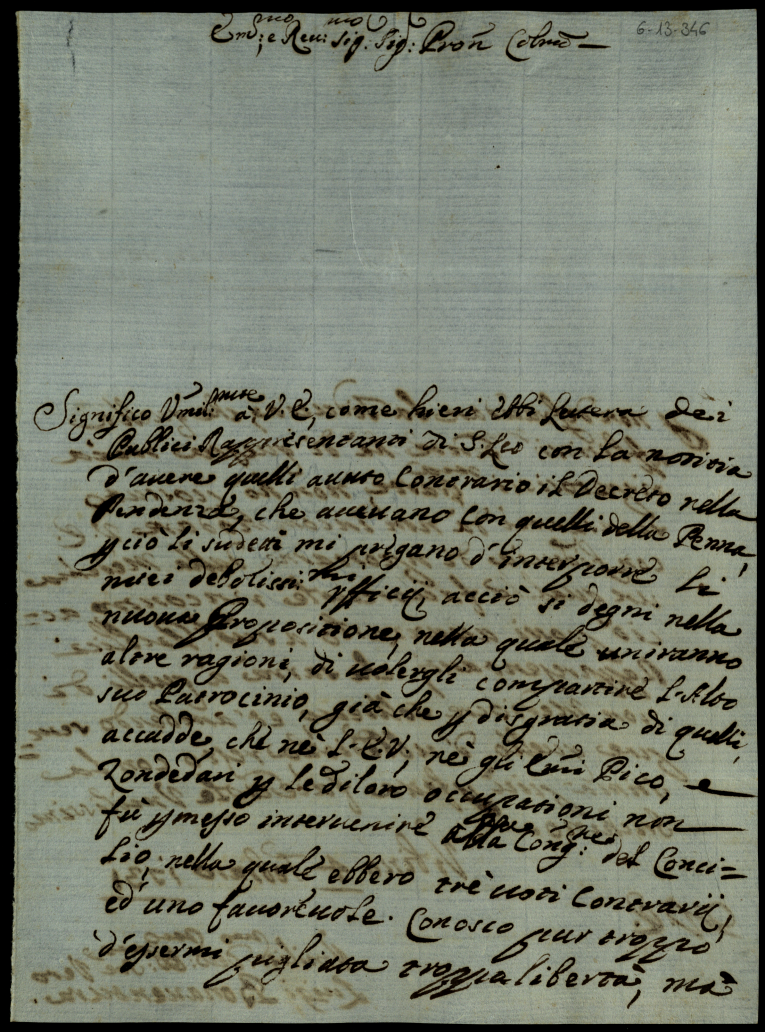 6-13-346
Em:mo e Reu:mo Sig: Sig: Pron Colmo
Significo Vmil:mte à V. E., come hieri ebbi Lettera dei
Publici Rappresentanti di S. Leo con la notitia
d'auere quelli auuto Contrario il Decreto nella
Pendenza, che aueuano con quelli della Penna,
p ciò li sudetti mi pregano d'interporre li
miei debolissi:mi ufficij, acciò si degni nella
nuoua Propositione, nella quale uniranno
altre ragioni, di uolergli compartire L'Alto
suo Patrocinio, già che p disgratia di quelli,
accadde, che nè L. E. V., nè gli Emi Pico, e
Zondedari p le di loro occupationi non
fù permesso interuenire alla Cong:ne del Conci=
lio, nella quale ebbero trè uoti Contrarij,
ed'uno fauoreuole. Conosco pur troppo
d'essermi pigliata troppa libertà, mà